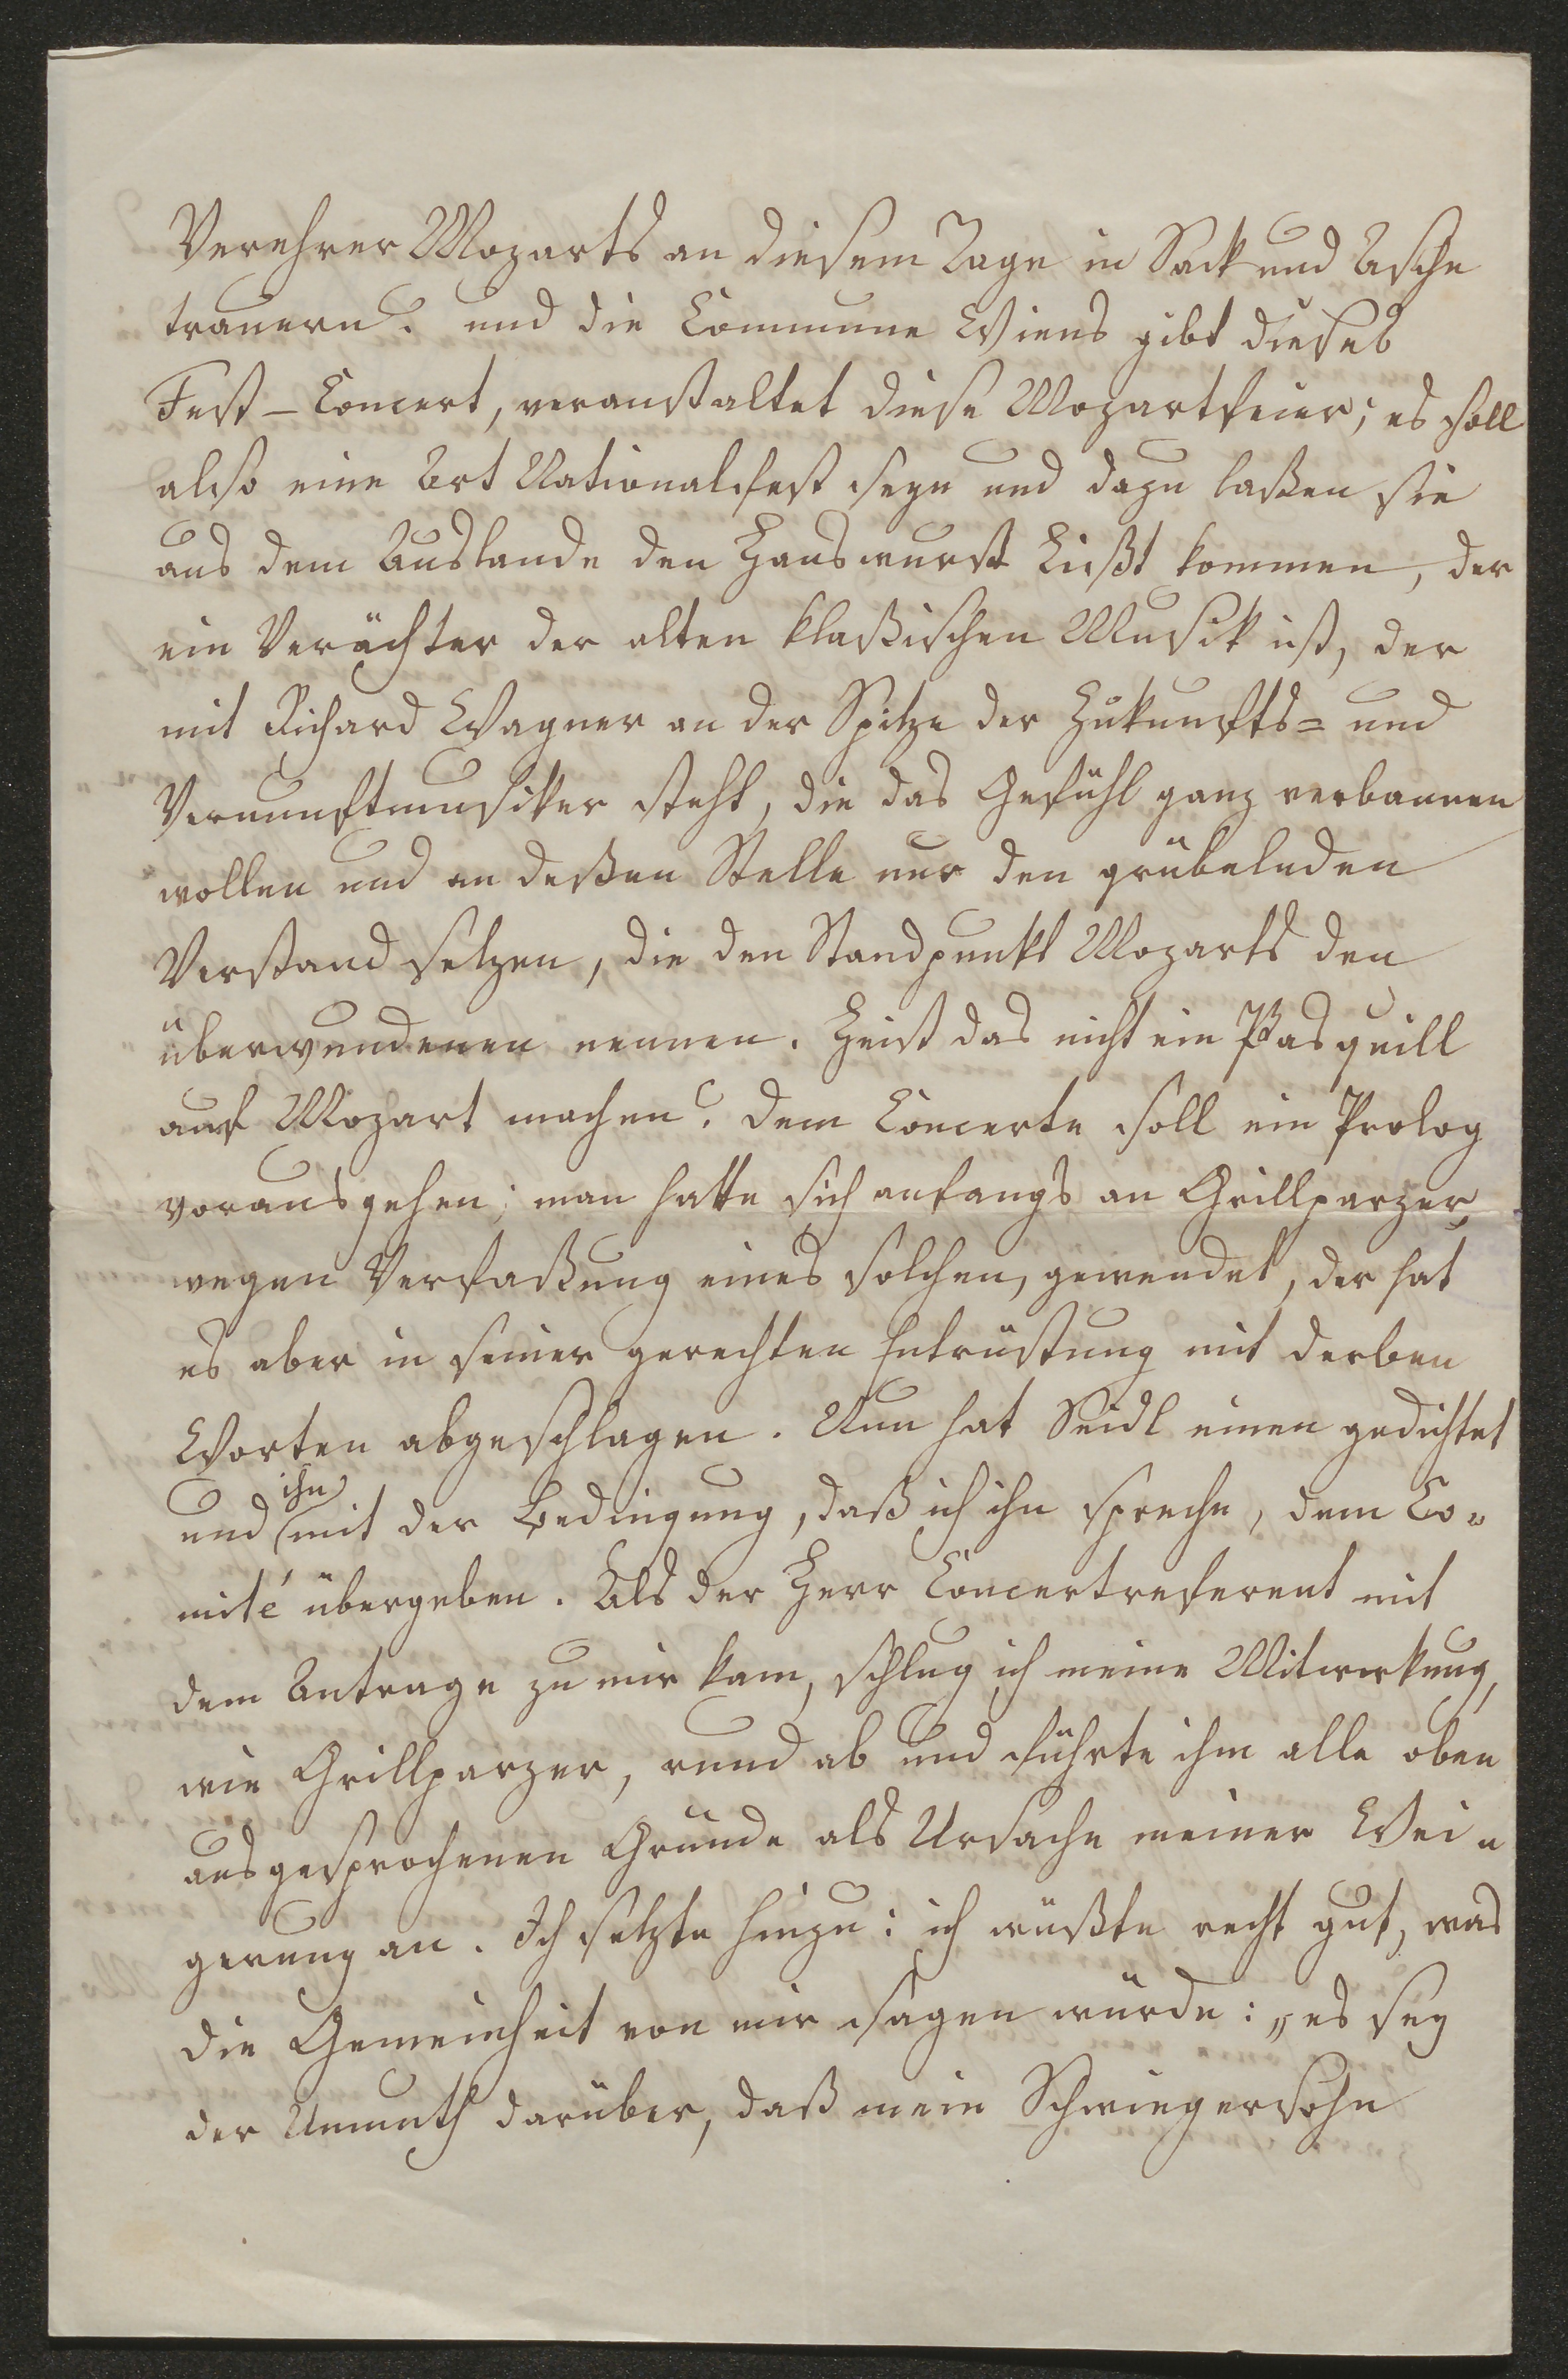 Verehrer Mozarts an diesem Tage in Sack und Asche
trauern? und die Commune Wiens gibt dieses
Fest-Concert, veranstaltet diese Mozartfeier; es soll
also eine Art Nationalfest seyn und dazu laßen sie
aus dem Auslande den Hanswurst Lißt kommen, der
ein Verächter der alten klaßischen Musik ist, der
mit Richard Wagner an der Spitze der Zukunfts= und
Vernunftmusiker steht, die das Gefühl ganz verbannen
wollen und an deßen Stelle nur den grübelnden
Verstand setzen, die den Standpunkt Mozarts den
überwundenen nennen. Heist das nicht ein Pasquill
auf Mozart machen? Dem Concerte soll ein Prolog
vorausgehen; man hatte sich anfangs an Grillparzer,
wegen Verfaßung eines solchen, gewendet, der hat
es aber in seiner gerechten Entrüstung mit derben
Worten abgeschlagen. Nun hat Seidl einen gedichtet
und ihn mit der Bedingung, daß ich ihn spreche, dem Co=
mité übergeben. Als der Herr Concertreferent mit
dem Antrage zu mir kam, schlug ich meine Mitwirkung,
wie Grillparzer, rund ab und führte ihm alle oben
ausgesprochenen Gründe als Ursache meiner Wei=
gerung an. Ich setzte hinzu: ich wüßte recht gut, was
die Gemeinheit von mir sagen würde: „es sey
der Unmuth darüber, daß mein Schwiegersohn